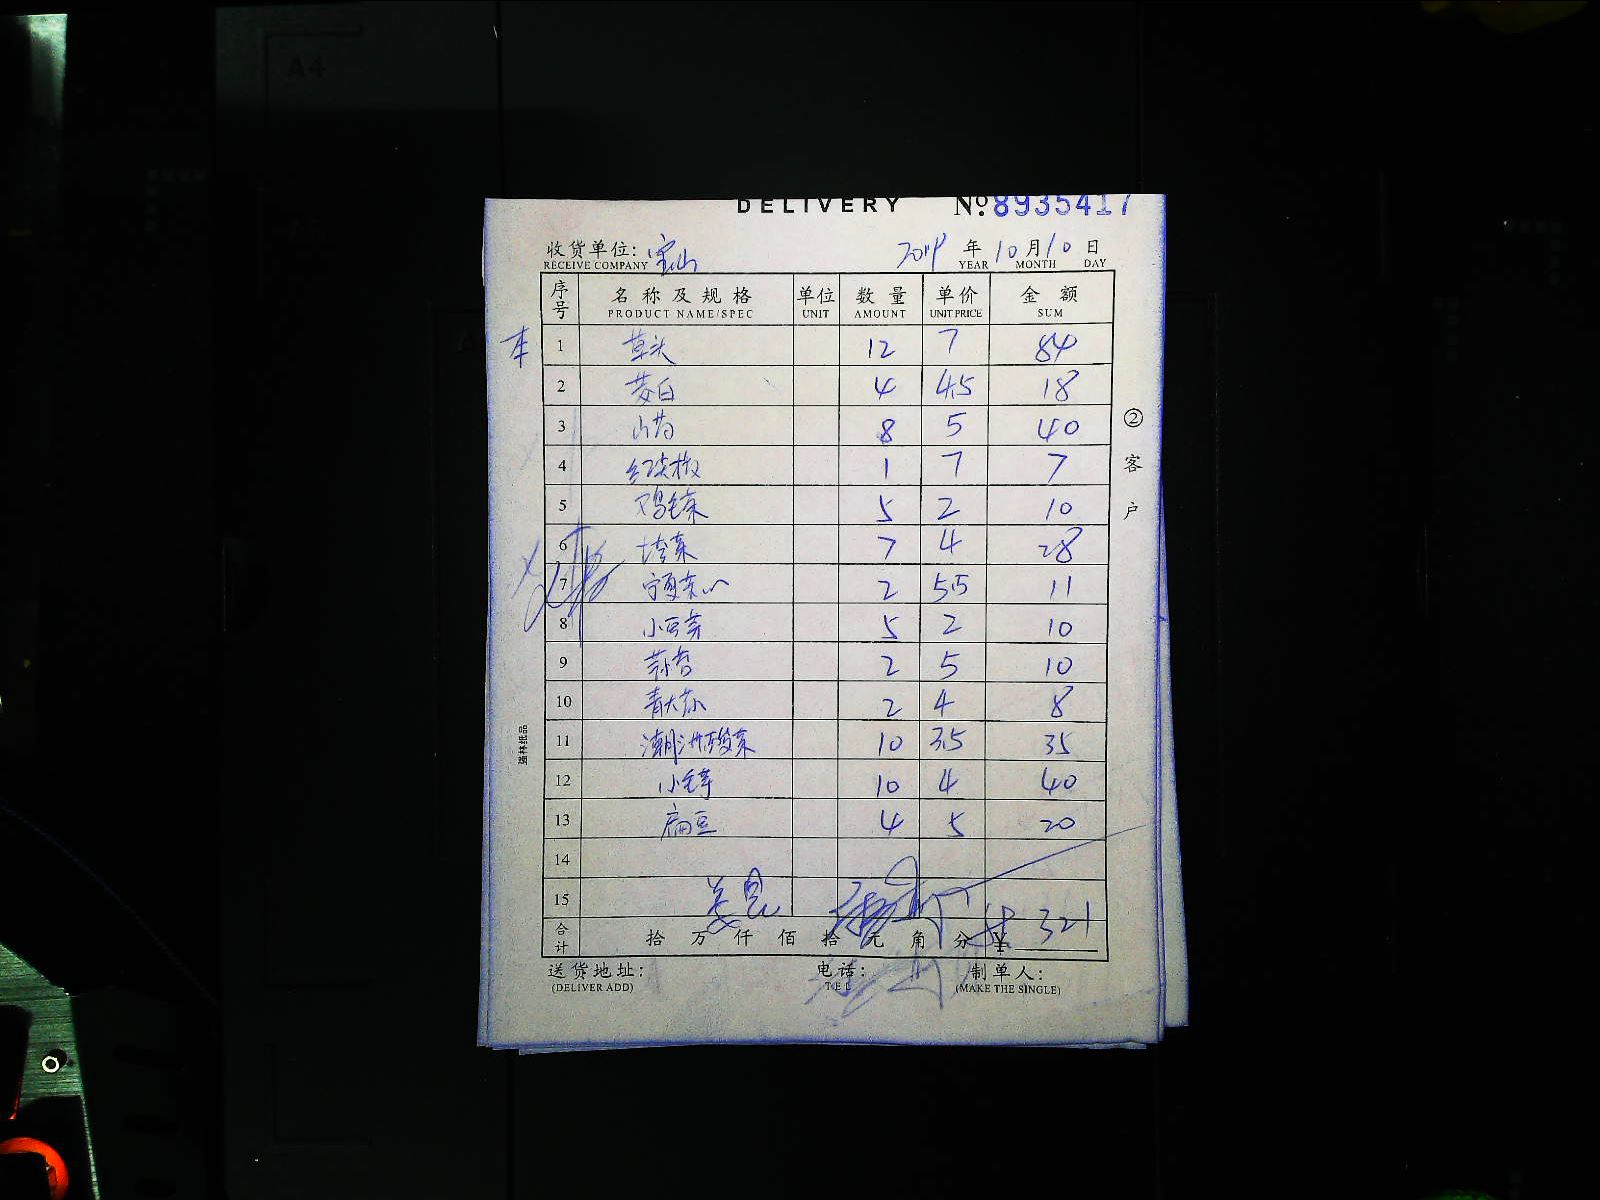 A4
DELIVERY Nº 8935417
收货单位: 宝山 年 10 月 10 日
RECEIVE COMPANY YEAR MONTH DAY
序号 名称及规格 单位 数量 单价 金额
PRODUCT NAME/SPEC UNIT AMOUNT UNIT PRICE SUM
1 草头 12 7 84
2 茭白 4 4.5 18
3 山药 8 5 40
4 红尖椒 1 7 7
5 鸡毛菜 5 2 10
6 塔菜 7 4 28
7 宁夏菜心 2 5.5 11
8 小豆芽 5 2 10
9 茶香 2 5 10
10 青大蒜 2 4 8
11 潮洲酸菜 10 3.5 35
12 小毛芋 10 4 40
13 扁豆 4 5 20
14
15
合计 拾 万 仟 佰 拾 元 角 分 ¥ 321
送货地址: 电话: 制单人:
(DELIVER ADD) TEL (MAKE THE SINGLE)
② 客户
强林纸品